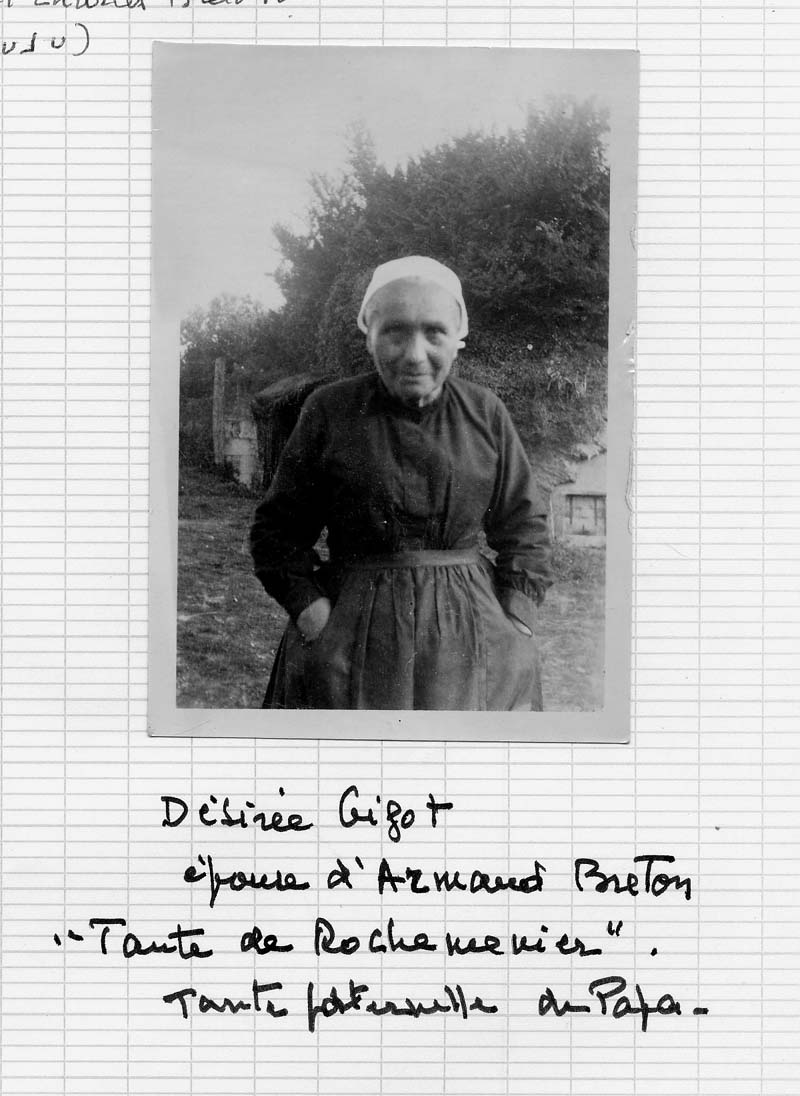 Désirée Gigot
épouse d'Armand Breton
"Tante de Rochemenier".
Tante paternelle de Papa-